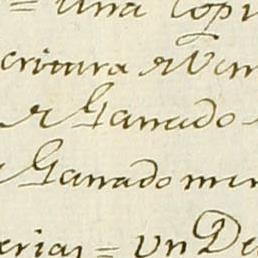 = Una Copi
critura de Ven
de Ganado
Ganado men
erias = Un De